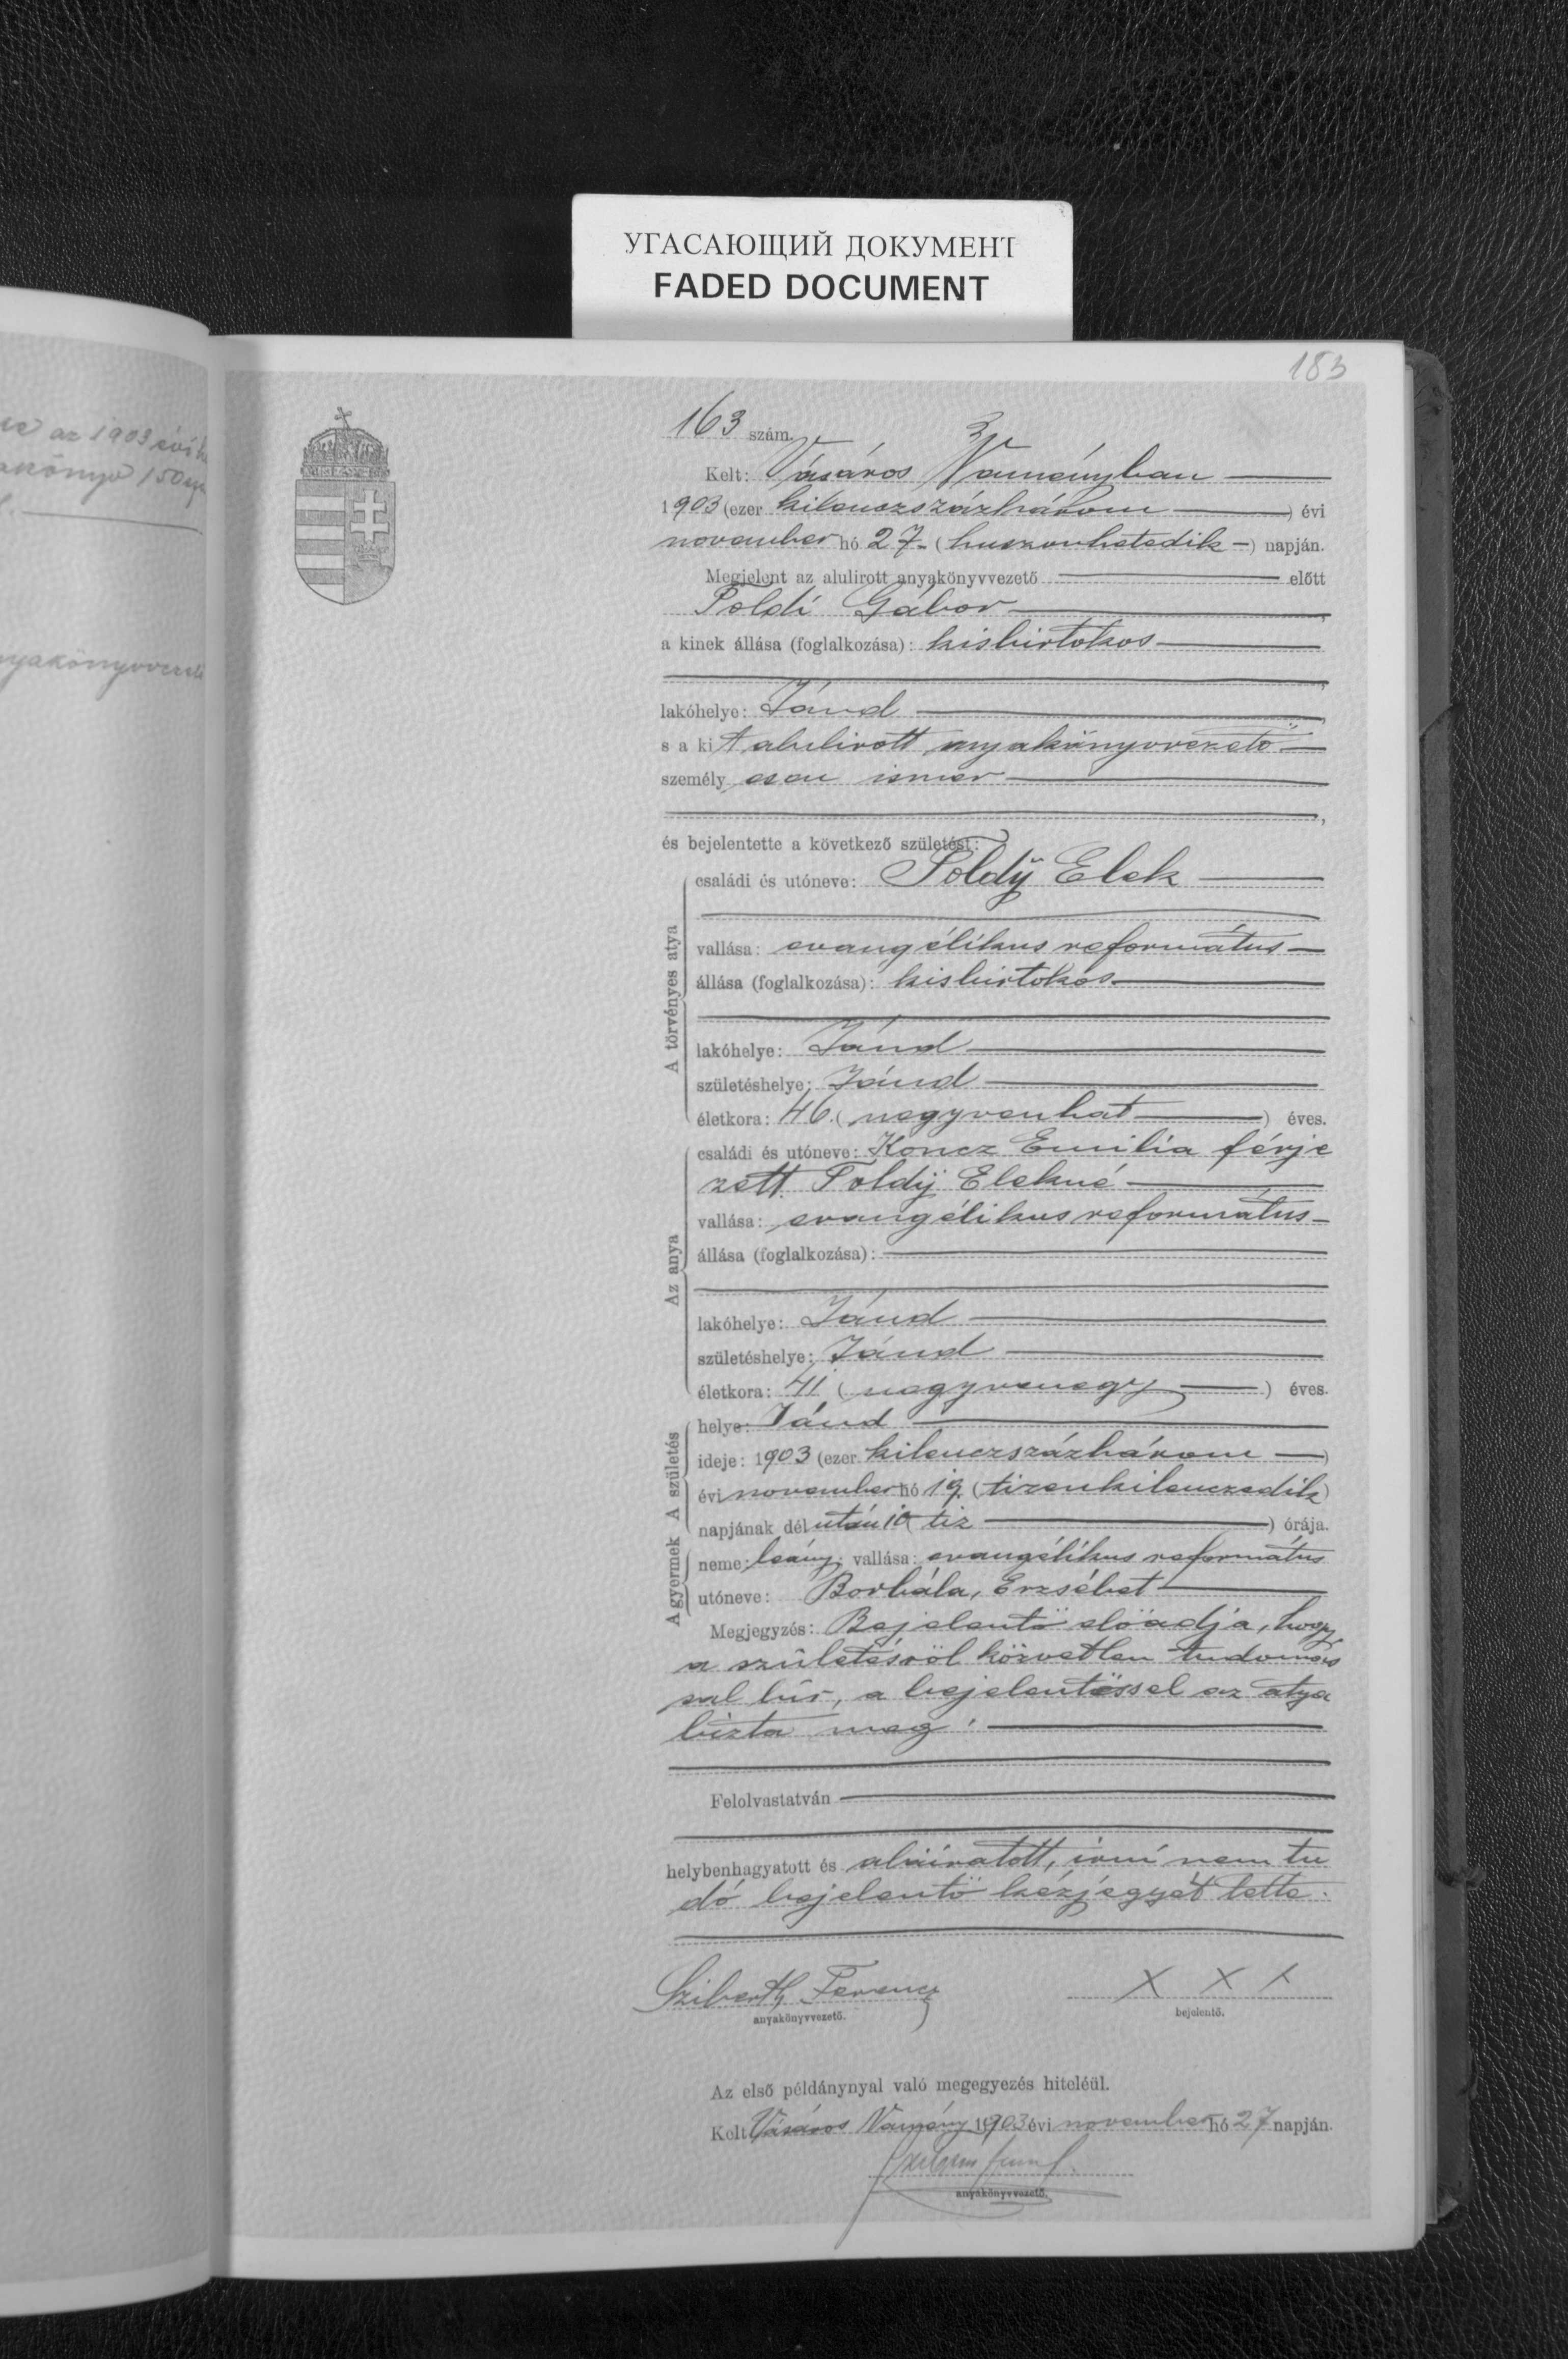 УГАСАЮЩИЙ ДОКУМЕНТ
FADED DOCUMENT
183
az 1903 évi
150
163 szám.
Kelt: Vásáros Naményban
1903 (ezer kilenczszázhárom ) évi
november hó 27- (huszonhetedik -) napján.
Megjelent az alulirott anyakönyvvezető előtt
Foldi Gábor
a kinek állása (foglalkozása): kisbirtokos
lakóhelye: Jánd
s a kit alulirott anyakönyvvezető
személyesen ismer
és bejelentette a következő születést:
A törvényes atya
családi és utóneve: Foldÿ Elek
vallása: evangélikus református
állása (foglalkozása): kisbirtokos
lakóhelye: Jánd
születéshelye: Jánd
életkora: 46. (negyvenhat ) éves.
Az anya
családi és utóneve: Koncz Emilia férje
zett Foldÿ Elekné
vallása: evangélikus református
állása (foglalkozása):
lakóhelye: Jánd
születéshelye: Jánd
életkora: 41 (negyvenegy ) éves.
A születés
helye: Jánd
ideje: 1903 (ezer kilenczszázhárom )
évi november hó 19. (tizenkilenczedik)
napjának délután 10 (tiz ) órája.
A gyermek
neme: leány; vallása: evangélikus református
utóneve: Borbála, Erzsébet
Megjegyzés: Bejelentö elöadja, hogy
a születésröl közvetlen tudomás
sal bir, a bejelentéssel az atya
bizta meg.
Felolvastatván
helybenhagyatott és aláiratott, irni nem tu
dó bejelentö kézjegyét tette.
Sziberth Ferencz X X X
anyakönyvvezető. bejelentő.
Az első példánynyal való megegyezés hiteléül.
Kelt Vásáros Namény 1903 évi november hó 27 napján.
anyakönyvvezető.